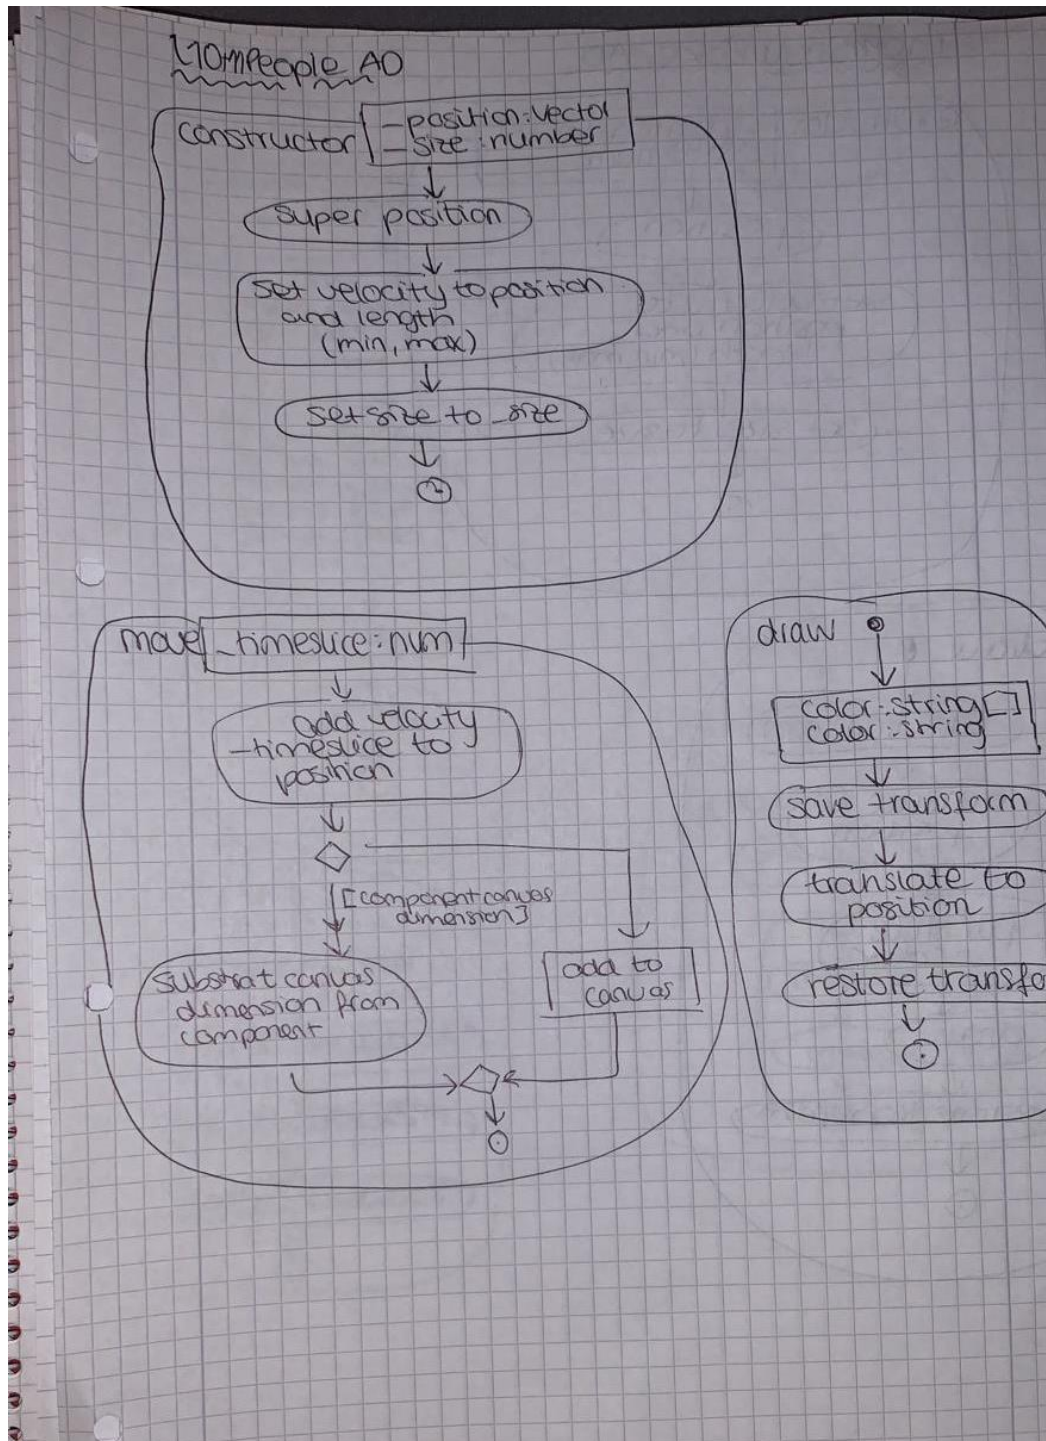 L10mPeople AD
constructor
_position:Vector
_size:number
super position
set velocity to position
and length
(min, max)
set size to _size
move
_timeslice:num
add velocity
_timeslice to
position
[component canvas
dimension]
substrat canvas
dimension from
component
add to
canvas
draw
color:string[]
color:string
save transform
translate to
position
restore transfo